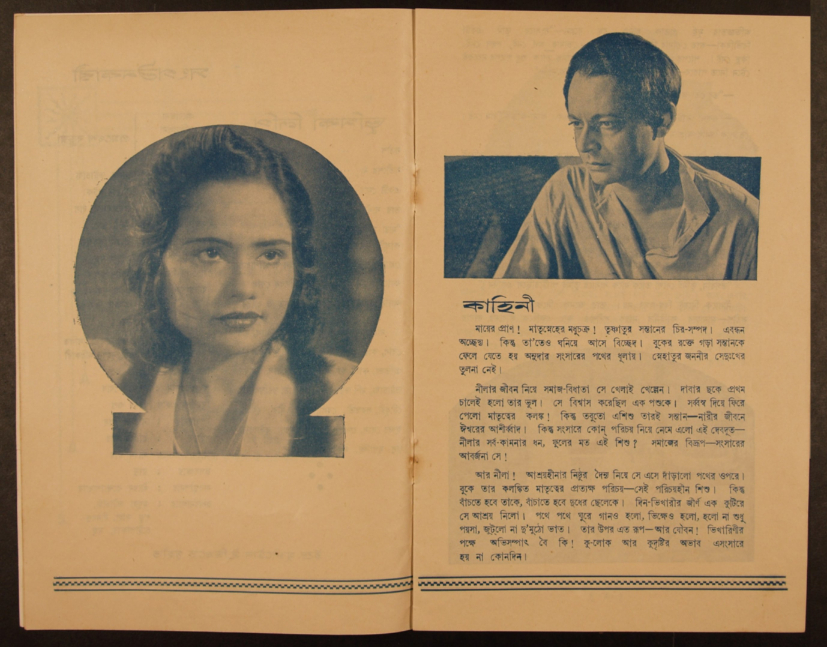 কাহিনী
মায়ের প্রাণ! মাতৃস্নেহের মধুচক্র! তৃষ্ণাতুর সন্তানের চির-সম্পদ। এবন্ধন
অচ্ছেদ্য। কিন্তু তা'তেও ঘনিয়ে আসে বিচ্ছেদ। বুকের রক্তে গড়া সন্তানকে
ফেলে যেতে হয় অনুদার সংসারের পথের ধূলায়। স্নেহাতুর জননীর সেদুঃখের
তুলনা নেই।
নীলার জীবন নিয়ে সমাজ-বিধাতা সে খেলাই খেল্লেন। দাবার ছকে প্রথম
চালেই হলো তার ভুল। সে বিশ্বাস করেছিল এক পশুকে। সর্ব্বস্ব দিয়ে ফিরে
পেলো মাতৃত্বের কলঙ্ক! কিন্তু তবুতো এশিশু তারই সন্তান—নারীর জীবনে
ঈশ্বরের আশীর্ব্বাদ। কিন্তু সংসারে কোন্ পরিচয় নিয়ে নেমে এলো এই দেবদূত—
নীলার সর্ব-কামনার ধন, ফুলের মত এই শিশু? সমাজের বিদ্রূপ—সংসারের
আবর্জনা সে!
আর নীলা! আশ্রয়হীনার নিষ্ঠুর দৈন্য নিয়ে সে এসে দাঁড়ালো পথের ওপরে।
বুকে তার কলঙ্কিত মাতৃত্বের প্রত্যক্ষ পরিচয়—সেই পরিচয়হীন শিশু। কিন্তু
বাঁচতে হবে তাকে, বাঁচাতে হবে দুধের ছেলেকে। দিন-ভিখারীর জীর্ণ এক কুটীরে
সে আশ্রয় নিলো। পথে পথে ঘুরে গানও হলো, ভিক্ষেও হলো, হলো না শুধু
পয়সা, জুট্‌লো না দু'মুঠো ভাত। তার উপর এত রূপ—আর যৌবন! ভিখারিণীর
পক্ষে অভিসম্পাৎ বৈ কি! কু-লোক আর কুদৃষ্টির অভাব এসংসারে
হয় না কোনদিন।